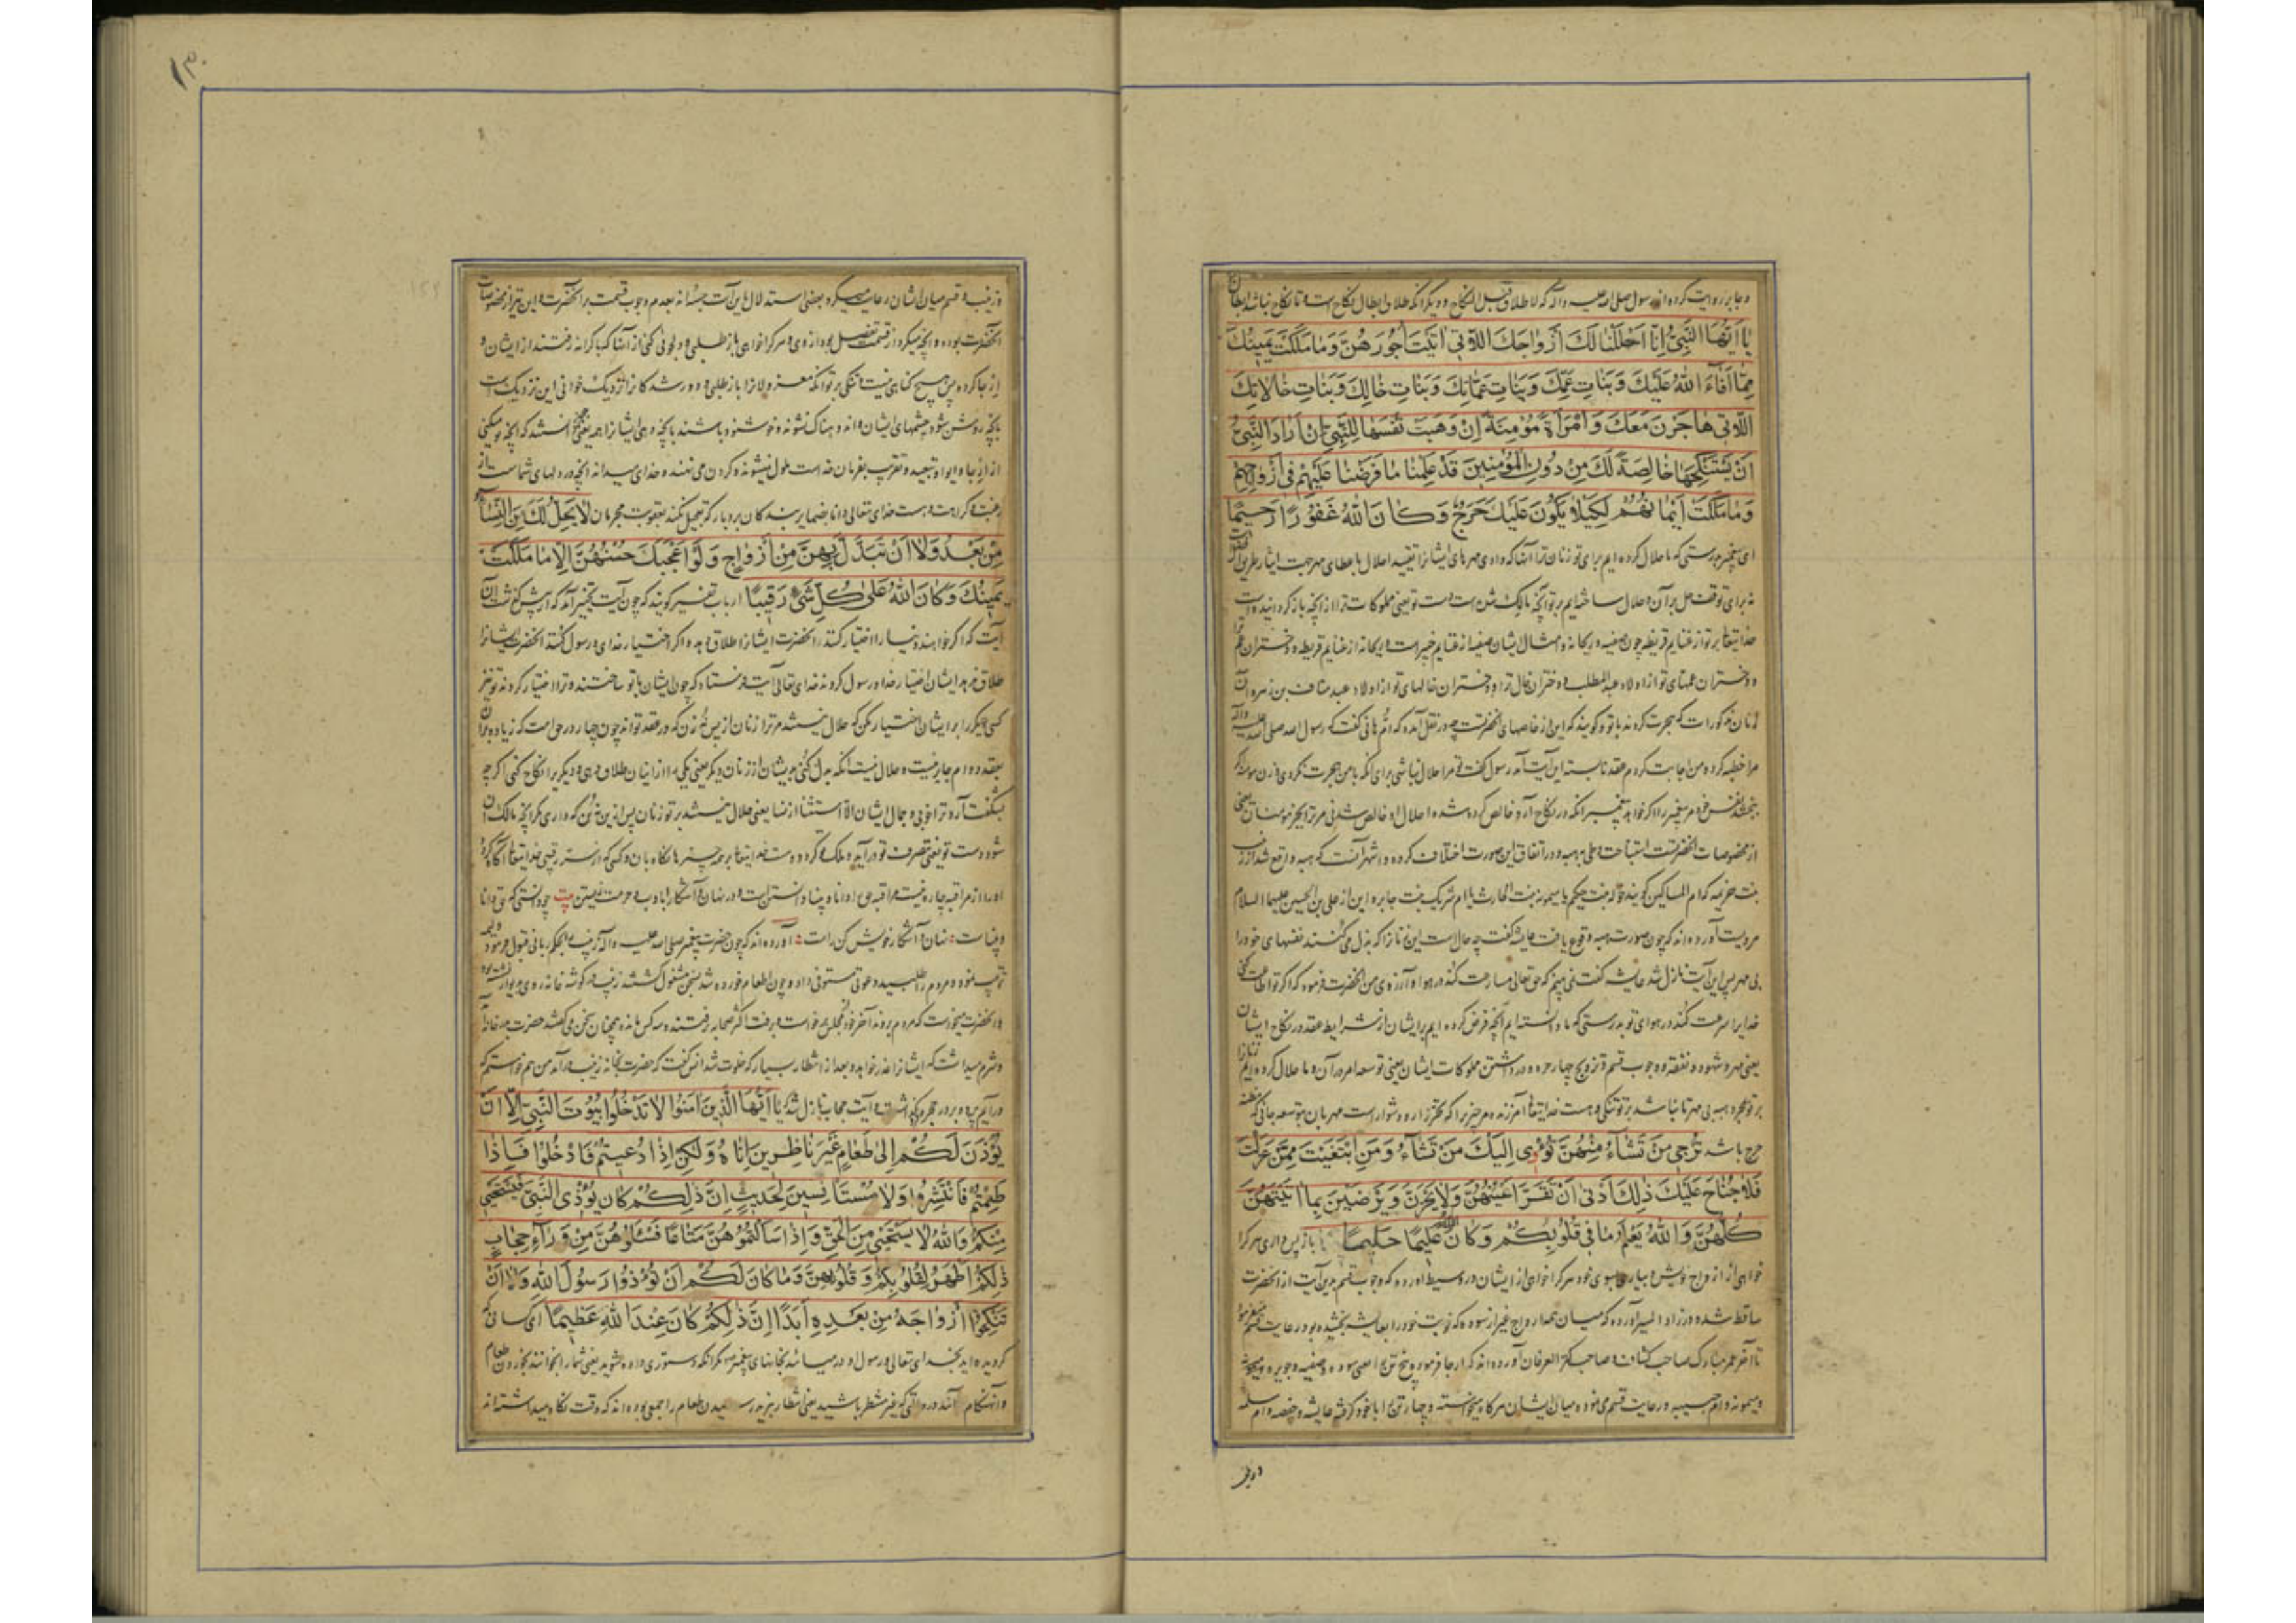 و جابر روایت کرده از رسول صلی الله علیه و آله که لا طلاق قبل النکاح و دیگر آنکه طلاق ابطال نکاح است و تا نکاح نباشد ابطال
يا ايها النبي انا احللنا لك ازواجك اللاتى اتيت اجورهن وما ملكت يمينك
مما افاء الله عليك وبنات عمك وبنات عماتك وبنات خالك وبنات خالاتك
اللاتى هاجرن معك وامراة مؤمنة ان وهبت نفسها للنبى ان اراد النبى
ان يستنكحها خالصة لك من دون المؤمنين قد علمنا ما فرضنا عليهم فى ازواجهم
وما ملكت ايمانهم لكيلا يكون عليك حرج وكان الله غفورا رحيما
ای پیغمبر بدرستی که ما حلال کرده ایم برای تو زنان ترا آنها که داده مهرهای ایشانرا تقیید احلال باعطای مهر جهت ایثار طریق
نه برای توقف حل بر آن و حلال ساخته ایم بر تو آنچه مالک شده است دست تو یعنی مملوکات ترا از آنچه باز گردانیده است
خدایتعالی بر تو از غنایم قریظه چون صفیه و ریحانه و امثال ایشان صفیه از غنایم خیبر است و ریحانه از غنایم قریظه و دختران عم ترا
و دختران عمهای تو از اولاد عبد المطلب و دختران خال ترا و دختران خالهای تو از اولاد عبد مناف بن زهره
زنان مذکورات که هجرت کردند با تو و گویند که این از خاصهای آنحضرتست چه در نقل آمده که ام هانی گفت که رسول الله صلی الله علیه وآله
مرا خطبه کرد و من اجابت کردم و عقد نابسته این آیت آمد رسول گفت تو مرا حلال نباشی برای آنکه با من هجرت نکردی و زن مومنه که
ببخشد نفس خود مر پیغمبر را اگر خواهد پیغمبر آنکه در نکاح آرد خالص کرده شده احلال او خالص شدنی مر ترا بجز مومنان یعنی
از مخصوصات آنحضرتست استباحت وطی بهبه و در اتفاق این صورت اختلاف کرده و اشهر آنست که هبه واقع شد از زینب
بنت خزیمه که ام المساکین گویند خوله بنت حکیم یا میمونه بنت الحارث یا ام شریک بنت جابر و این از علی بن الحسین علیهما السلام
مرویست آورده اند که چون صورت هبه وقوع یافت عایشه گفت چه حالست این زنانرا که بذل می کنند نفسهای خود را
بی مهر پس این آیت نازل شد عایشه گفت نمی بینم که حق تعالی مسارعت کند در هوا و آرزوی من آنحضرت فرمود که اگر تو اطاعت کنی
خدا را سرعت کند در هوای تو بدرستی که ما دانسته ایم آنچه فرض کرده ایم بر ایشان از شرایط عقد در نکاح ایشان
یعنی مهر و شهود و نفقه و وجوب قسم و تزویج چهار حره و در داشتن مملوکات ایشان یعنی توسعه امر در آن و ما حلال کرده ایم زنانرا
بر تو بمجرد هبه بی مهر تا نباشد بر تو تنگی و هست خدایتعالی آمرزنده مر چیزیرا که تحرز از او دشوار است مهربان بتوسعه جائی که مظنه
حرج باشد ترجى من تشاء منهن وتؤوى اليك من تشاء ومن ابتغيت ممن عزلت
فلا جناح عليك ذلك ادنى ان تقر اعينهن ولا يحزن ويرضين بما اتيتهن
كلهن والله يعلم ما فى قلوبكم وكان الله عليما حليما باز پس داری هر کرا
خواهی از ازواج خویش و بیاری بسوی خود هر کرا خواهی از ایشان در وسیط آورده که وجوب قسم بدین آیت از آنحضرت
ساقط شده و در زاد المسیر آورده که میان همه ازواج غیر از سوده که نوبت خود را بعایشه بخشیده بود رعایت قسم میفرمود
تا آخر عمر مبارک صاحب کشاف و صاحب کنز العرفان آورده اند که ارجا فرموده پنج تن را اعنی سوده و صفیه و جویریه
و میمونه و ام حبیبه و رعایت قسم می نمود میان ایشان هر گاه میخواسته و چهار تن را با خود گرفته عایشه و حفصه و ام سلمه
و زینب
و زینب و قسم میان ایشان رعایت میکرد و بعضی استدلال باین آیت جسته اند بعدم وجوب قسمت بر آنحضرت و این نیز از مخصوصات
آنحضرت بوده و آنچه میکرد از قسمت تفضل بود از وی و هر کرا خواهی باز طلبی و دلجوئی کنی از آنها که کرانه رفتند از ایشان و
ارجا کرده پس هیچ گناهی نیست و تنگی بر تو آنکه معزولانرا باز طلبی و دور شدگانرا نزدیک خوانی این نزدیک است
بآنچه روشن شود چشمهای ایشان و اندوهناک نشوند و خوشنود باشند بآنچه دهی ایشانرا همه یعنی چون دانستند که آنچه تو میکنی
از ارجا و ایوا و تبعید و تقرب بفرمان خداست ملول نمیشوند و گردن می نهند و خدای میداند آنچه در دلهای شماست از
رغبت و کراهت و هست خدای تعالی دانا بضمایر بندگان بردبار که تعجیل نکند بعقوبت مجرمان لا يحل لك النساء
من بعد ولا ان تبدل بهن من ازواج ولو اعجبك حسنهن الا ما ملكت
يمينك وكان الله على كل شئ رقيبا ارباب تفسیر گویند که چون آیت تخییر آمد که ذکرش گذشت آن
آیت که اگر خواهند دنیا را اختیار کنند آنحضرت ایشانرا طلاق دهد و اگر اختیار خدای و رسول کنند آنحضرت ایشانرا
طلاق ندهد ایشان اختیار خدا و رسول کردند خدای تعالی آیت فرستاد که چون ایشان با تو ساختند و ترا اختیار کردند تو نیز
کسی دیگر را بر ایشان اختیار مکن که حلال نیستند مر ترا زنان از پس نه زن که در عقد تواند چون چهار در حق امت که زیاده بر آن
بعقد دوام جایز نیست و حلال نیست آنکه بدل کنی بدیشان از زنان دیگر یعنی یکی را از اینان طلاق دهی و دیگریرا نکاح کنی اگر چه
بشگفت آرد ترا خوبی و جمال ایشان الا استثنا از نسا یعنی حلال نیستند بر تو زنان پس ازین نه زن که داری مگر آنچه مالک آن
شود دست تو یعنی بتصرف تو درآید و ملک تو گردد و هست خدایتعالی بر همه چیزها نگاه بان و کسی که از سر رقیبی خدایتعالی آگاه گردد
او را از مراقبه چاره نیست و مراقبه حق را دانا و بینا دانستن است و در نهان و آشکارا با ادب و حرمت زیستن بیت چو دانستی که حق دانا
و بیناست نهان و آشکار خویش کن راست آورده اند که چون حضرت پیغمبر صلی الله علیه و آله زینب را بحکم ربانی قبول فرمود ولیمه
ترتیب نمود و مردم را طلبیده دعوتی مستوفی داد و چون طعام خورده شد بسخن مشغول گشتند زینب در گوشه خانه روی بدیوار نشسته بود
و آنحضرت میخواست که مردم بروند آخر خود از مجلس برخاست و برفت اکثر صحابه رفتند و سه کس مانده همچنان سخن می گفتند حضرت بدر خانه آمد
و شرم میداشت که ایشانرا عذر خواهد و بعد از انتظار بسیار که خلوت شد انس گفت که حضرت بخانه زینب درآمد من هم خواستم که
درآیم پرده بر در حجره گذاشت و آیت حجاب نازل شد که يا ايها الذين امنوا لا تدخلوا بيوت النبى الا ان
يؤذن لكم الى طعام غير ناظرين اناه ولكن اذا دعيتم فادخلوا فاذا
طعمتم فانتشروا ولا مستانسين لحديث ان ذلكم كان يؤذى النبى فيستحيى
منكم والله لا يستحيى من الحق واذا سالتموهن متاعا فسئلوهن من وراء حجاب
ذلكم اطهر لقلوبكم وقلوبهن وما كان لكم ان تؤذوا رسول الله ولا ان
تنكحوا ازواجه من بعده ابدا ان ذلكم كان عند الله عظيما ای کسانی که
گرویده اید بخدای تعالی و رسول او در میائید بخانهای پیغمبر مگر آنکه دستوری داده شوید یعنی شما را بخوانند بخوردن طعام
و آنهنگام آئید در حالتی که غیر منتظر باشید یعنی انتظار نبرید رسیدن طعام را جمعی بوده اند که وقت نگاه میداشته اند